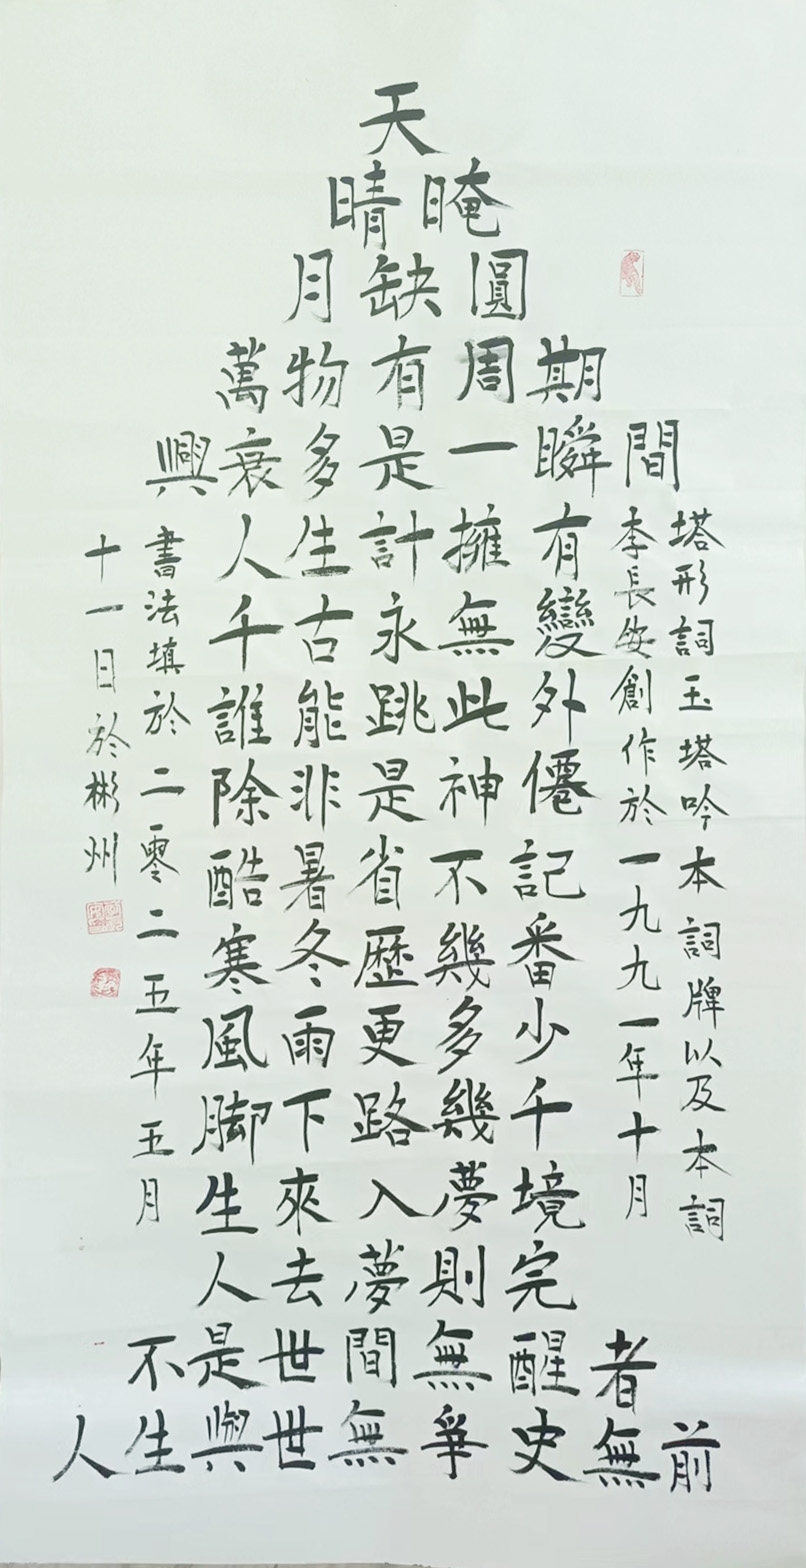 天
晴晻
月缺圓
萬物有周期
興衰多是一瞬間
人生計擁有
千古永無變
誰能跳此外
除非是神僊
酷暑省不記
寒冬歷幾番
風雨更多少
脚下路幾千
生來入夢境
人去夢則完
不是世間無醒者
人生與世無爭史無前
塔形詞玉塔吟本詞牌以及本詞
李長安創作於一九九一年十月
書法填於二零二五年五月
十一日於彬州